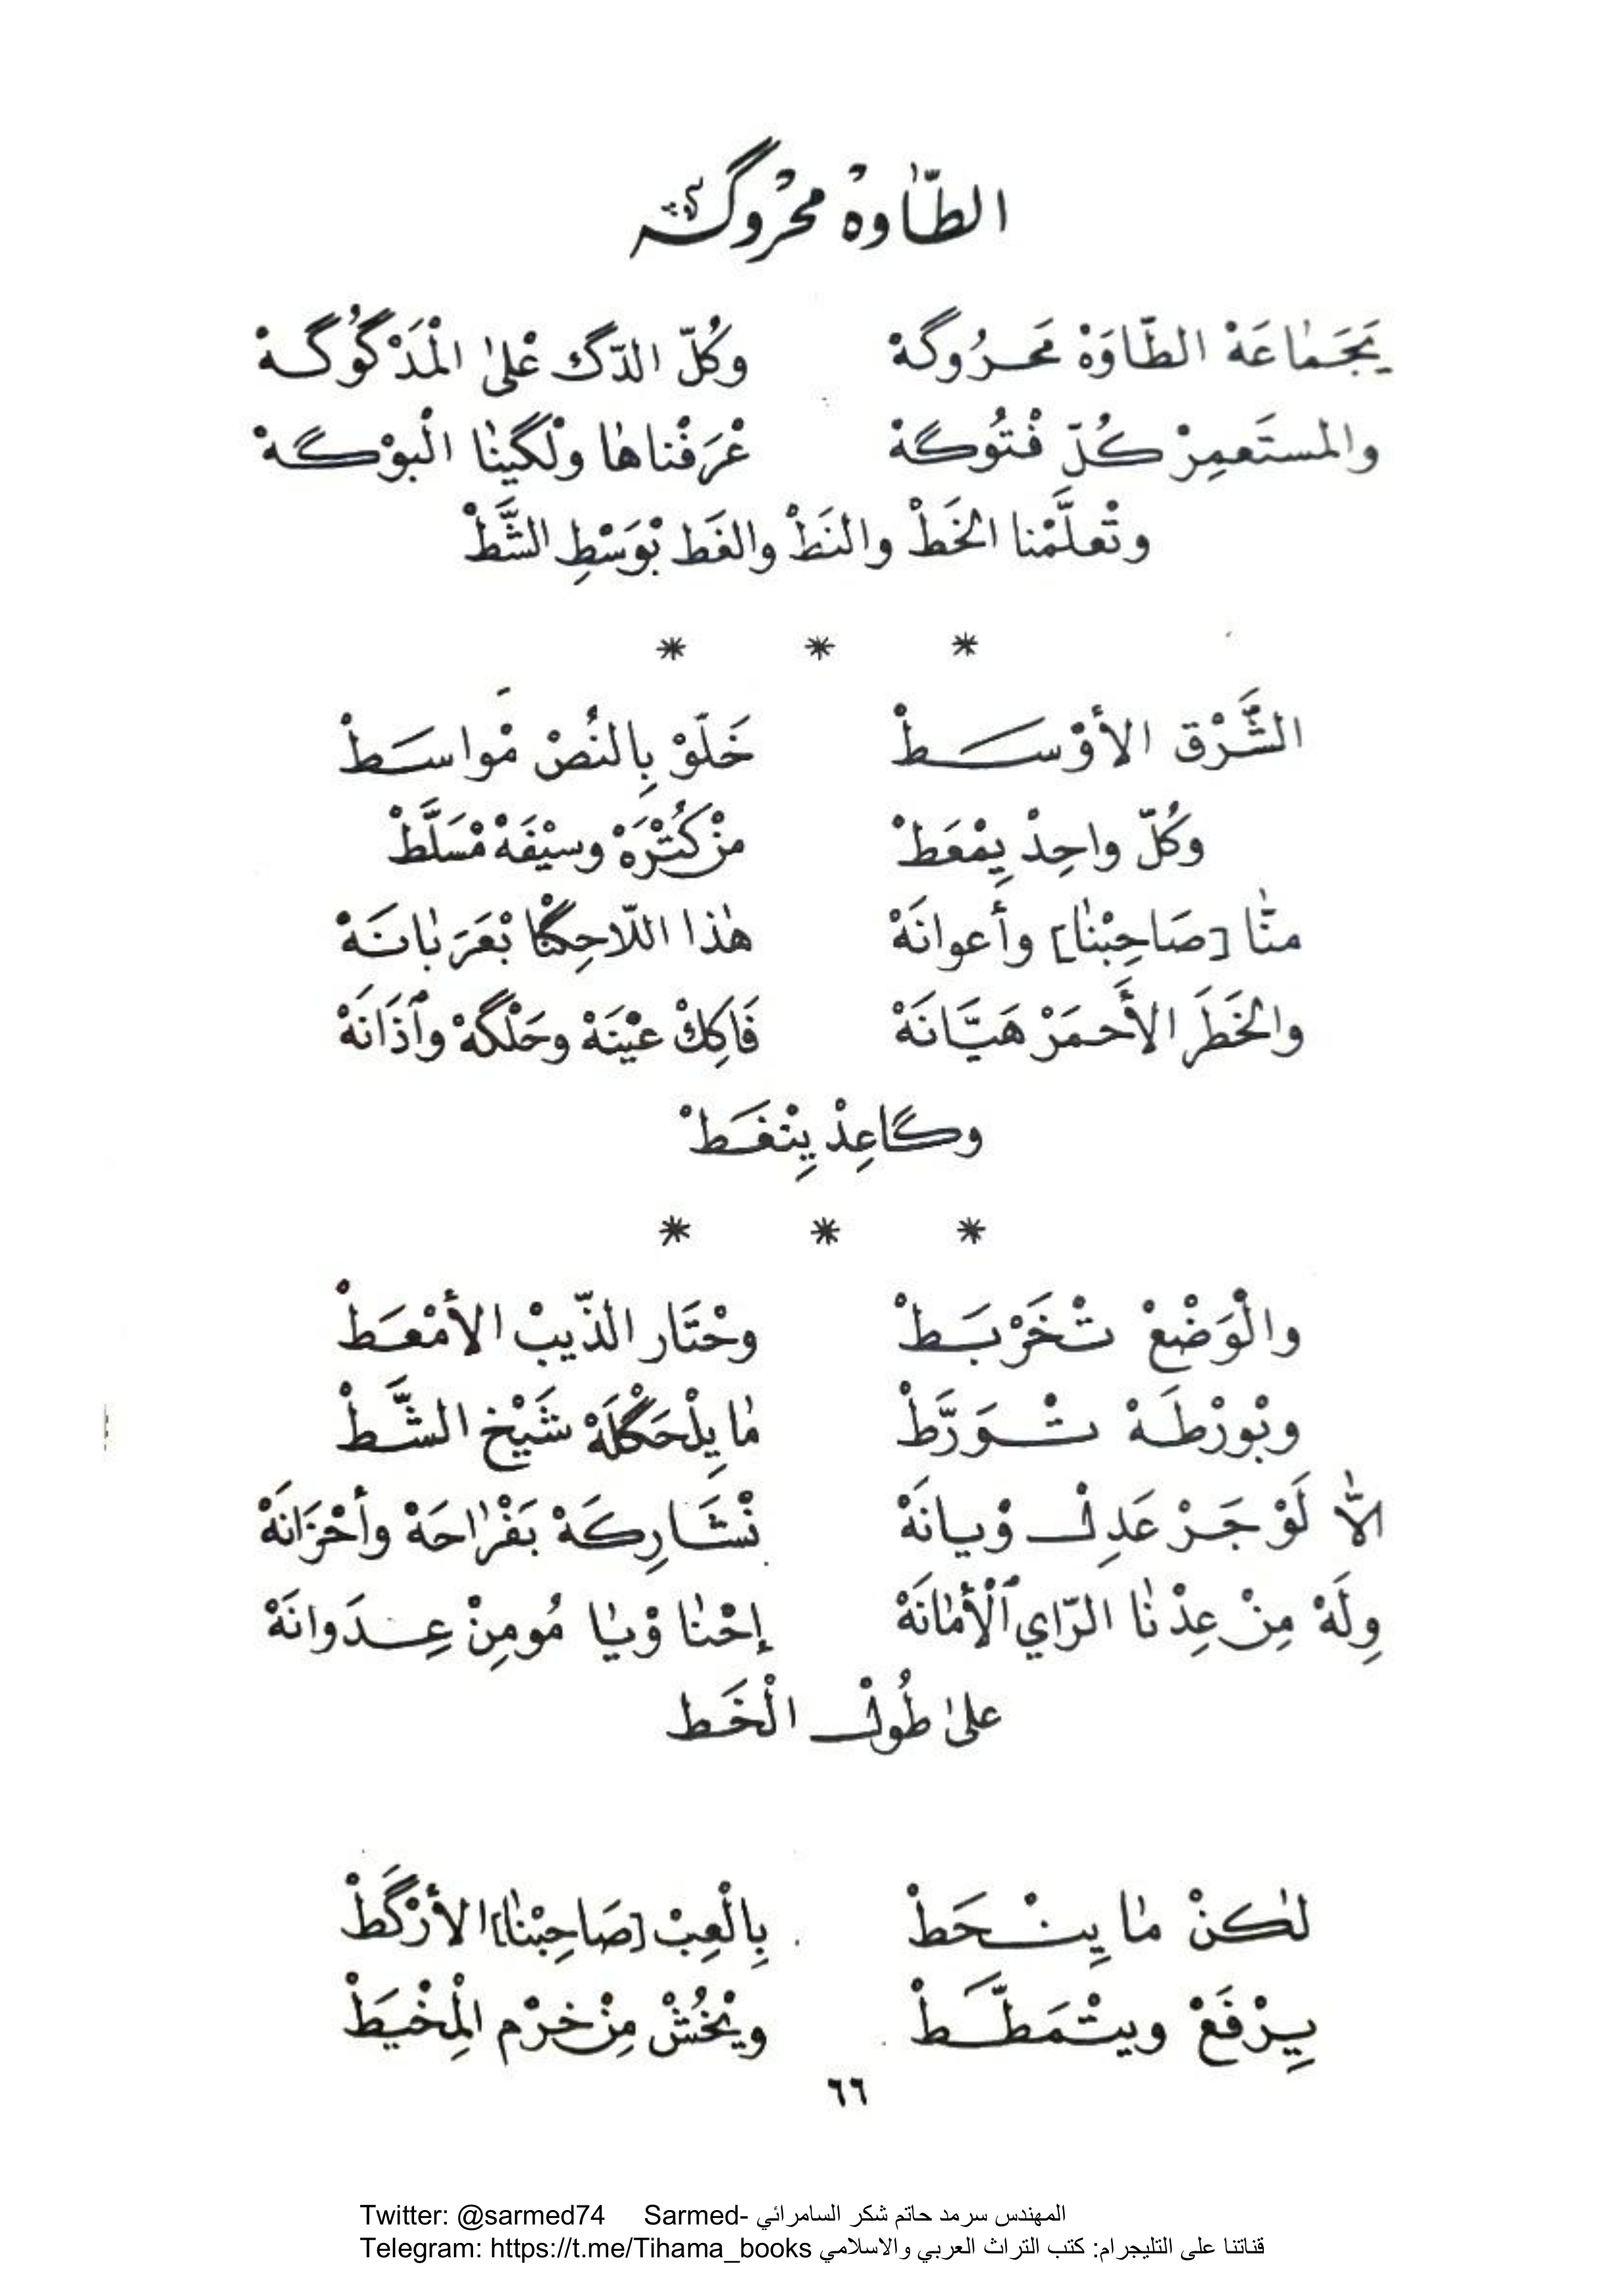 الطّاوهْ محْروگهْ
يَجَماعَهْ الطّاوَهْ مَحرُوگهْ وكُلّ الدّگ عْلىٰ الْمَدْگُوگهْ
والمستَعمِرْ كُلّ فْتُوگهْ عْرَفْناها ولْگَينا الْبوْگهْ
وتْعلَّمْنا الخَطْ والنَطْ والغَط بْوَسْطِ الشَّطْ
* * *
الشَّرْق الأوْسَطْ خَلّوْ بِالنُصْ مْواسَطْ
وكُلّ واحِدْ يِمْعَطْ مزْ كُتْرَهْ وسيْفَهْ مْسَلَّطْ
منّا [صَاحِبْنا] وأعوانَهْ هٰذا اللّاحِگنْا بْعَرَبانَهْ
والخَطَر الأحمَرْ هَيَّانَهْ فَاكِكْ عيْنَهْ وحَلْگهْ وآذَانَهْ
وگاعِدْ يِتْغَطْ
* * *
والْوَضْعْ تْخَرْبَطْ وحْتَار الذّيبْ الأمْعَطْ
وبْورْطَهْ تْوَرَّطْ ما يِلْحَگْلَهْ شَيْخ الشَّطْ
الاّ لَوْ جَرْ عَدِلْ وْيانَهْ نْشَارِكَهْ بَفْراحَهْ وأحْزَانَهْ
وِلَهْ مِنْ عِدْنا الرّاي الْأمانَهْ إحْنا وْيا مُومِنْ عِدَوانَهْ
علىٰ طُولْ الْخَط
لٰكنْ ما يِنْحَطْ بِالْعِبْ [صَاحِبْنا] الأرْگَطْ
يِرْفَعْ ويتْمَطَّطْ ويْخُشْ مِنْ خرْم الْمِخْيَطْ
٦٦
Twitter: @sarmed74 Sarmed- المهندس سرمد حاتم شكر السامرائي
Telegram: https://t.me/Tihama_books قناتنا على التليجرام: كتب التراث العربي والاسلامي